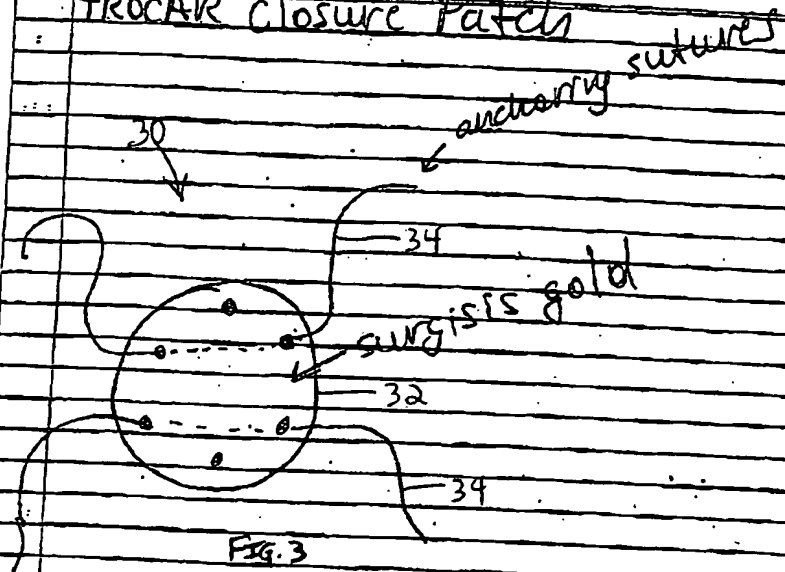 TROCAR Closure Patch
anchoring sutures
30
34
surgisis gold
32
34
FIG. 3